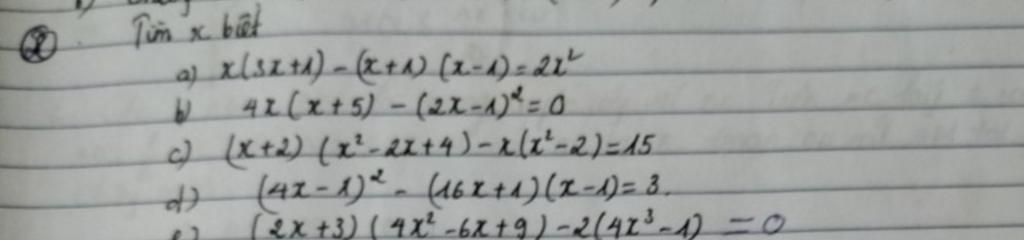 ② Tìm x biết
a) x(3x+1) - (x+1) (x-1) = 2x²
b) 4x(x+5) - (2x-1)² = 0
c) (x+2) (x² - 2x+4) - x(x² - 2) = 15
d) (4x-1)² - (16x+1)(x-1) = 3.
e) (2x+3) (4x² - 6x+9) - 2(4x³ - 1) = 0